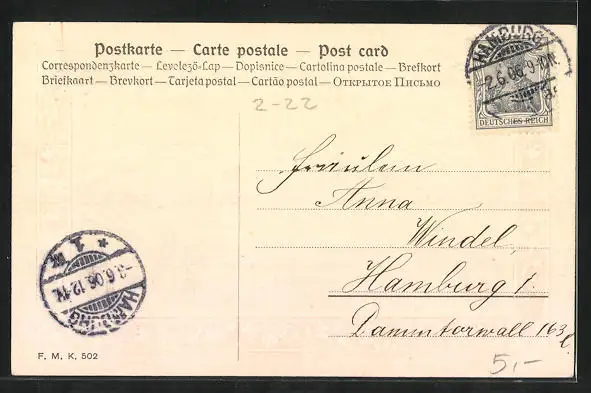 Postkarte — Carte postale — Post card
Correspondenzkarte — Levelező-Lap — Dopisnice — Cartolina postale — Brefkort
Briefkaart — Brevkort — Tarjeta postal — Cartão postal — Открытое Письмо
2-22
HAMBURG
2.6.06.9-10N.
DEUTSCHES REICH
Fräulein
Anna
Windel,
Hamburg 1.
Dammtorwall 163
HAMBURG
-3.6.06.12-1N.
* 1
F. M. K. 502
5,-